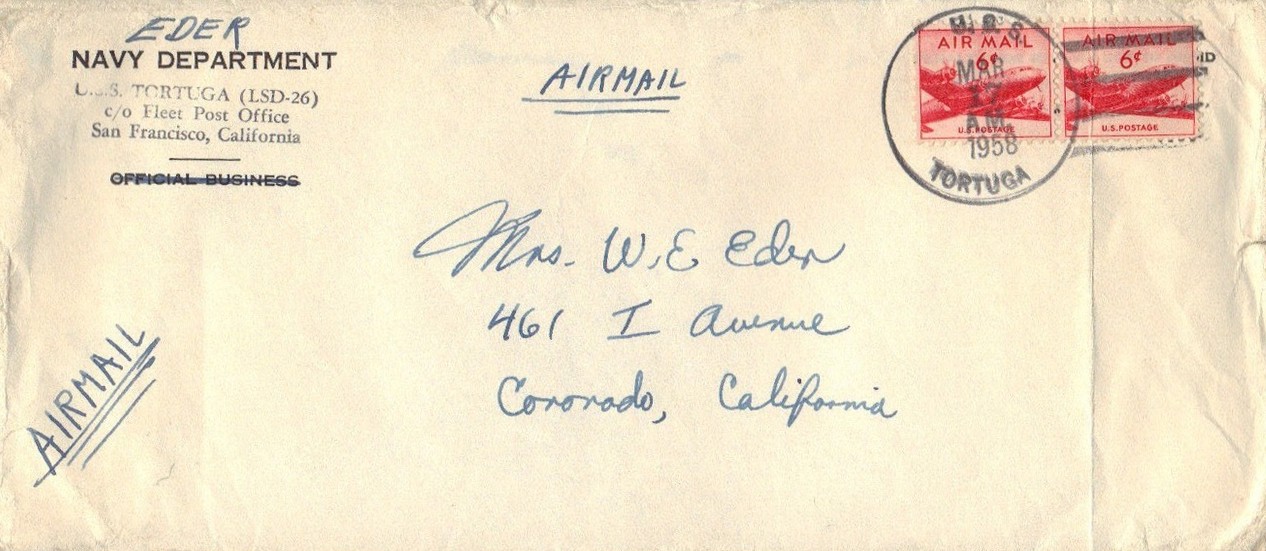 EDER
NAVY DEPARTMENT
U.S.S. TORTUGA (LSD-26)
c/o Fleet Post Office
San Francisco, California
OFFICIAL BUSINESS
AIRMAIL
U.S.S.
MAR
17
A.M.
1958
TORTUGA
AIR MAIL
6¢
U.S. POSTAGE
AIR MAIL
6¢
U.S. POSTAGE
ID
Mrs. W. E Eder
461 I Avenue
Coronado, California
AIRMAIL